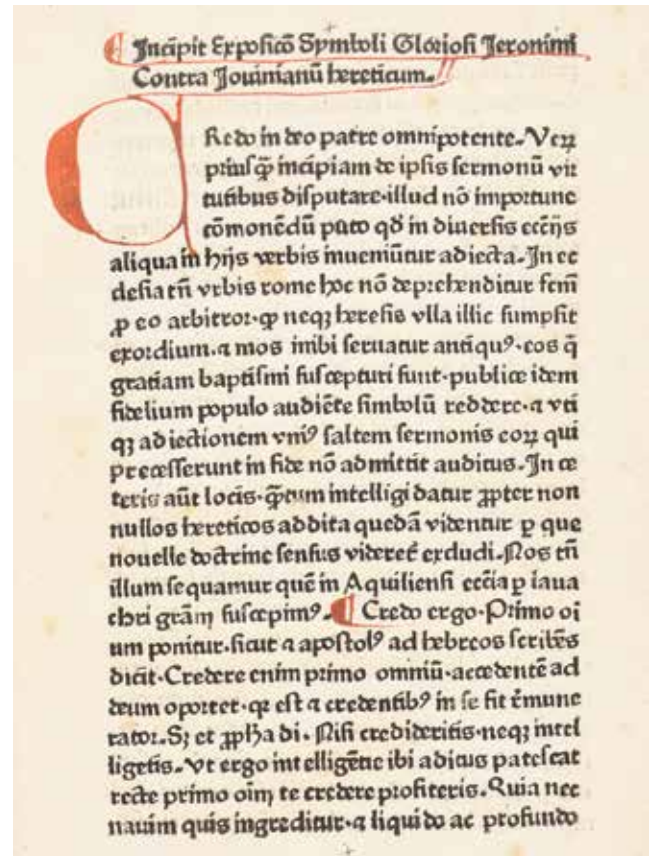 Incipit Exposicō Symboli Gloriosi Jeronimi
Contra Jouinianū hereticum.
CRedo in deo patre omnipotente. Veꝝ
priusꝙ̄ incipiam de ipsis sermonū vir
tutibus disputare·illud nō importune
cōmonēdū puto qd̄ in diuersis eccīijs
aliqua in hijs verbis inueniūtur adiecta. In ec
clesia tn̄ vrbis rome hoc nō deprehenditur fcm̄
ꝓ eo arbitror·ꝙ neqꝫ heresis vlla illic sumpsit
exordium.⁊ mos inibi seruatur antiquꝰ·eos q̄
gratiam baptismi suscepturi sunt·publice idem
fidelium populo audiēte simbolū reddere·⁊ vti
qꝫ adiectionem vniꝰ saltem sermonis eoꝝ qui
precesserunt in fide nō admittit auditus. In ce
teris aūt locis·ꝙ̄tum intelligi datur ꝓpter non
nullos hereticos addita quedā videntur ꝑ que
nouelle doctrine sensus videret̄ excludi. Nos tn̄
illum sequamur quē in Aquiliensi eccīa ꝑ laua
chri grām̄ suscepimꝰ. ¶ Credo ergo·Primo oī
um ponitur.sicut ⁊ apostolꝰ ad hebreos scribēs
dicit·Credere enim primo omniū·accedentē ad
deum oportet·qꝛ est ⁊ credentibꝰ in se fit r̄mune
rator. Sꝫ et ꝓpħa di. Nisi credideritis·neqꝫ intel
ligetis. Vt ergo intelligētie ibi aditus patescat
recte primo oīm̄ te credere profiteris. Quia nec
nauim quis ingreditur·⁊ liquido ac profundo